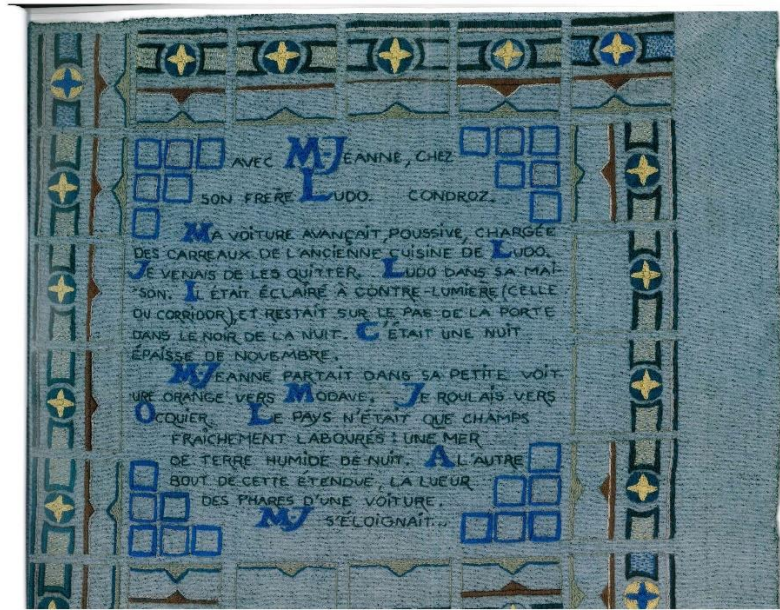 AVEC M-JEANNE, CHEZ
SON FRERE LUDO. CONDROZ.
MA VOITURE AVANÇAIT, POUSSIVE, CHARGÉE
DES CARREAUX DE L'ANCIENNE CUISINE DE LUDO.
JE VENAIS DE LES QUITTER. LUDO DANS SA MAI-
SON. IL ÉTAIT ÉCLAIRÉ À CONTRE-LUMIÈRE (CELLE
DU CORRIDOR), ET RESTAIT SUR LE PAS DE LA PORTE
DANS LE NOIR DE LA NUIT. C'ÉTAIT UNE NUIT
ÉPAISSE DE NOVEMBRE.
M-JEANNE PARTAIT DANS SA PETITE VOIT-
URE ORANGE VERS MODAVE. JE ROULAIS VERS
OCQUIER. LE PAYS N'ÉTAIT QUE CHAMPS
FRAÎCHEMENT LABOURÉS : UNE MER
DE TERRE HUMIDE DE NUIT. A L'AUTRE
BOUT DE CETTE ÉTENDUE, LA LUEUR
DES PHARES D'UNE VOITURE.
M-J S'ÉLOIGNAIT...